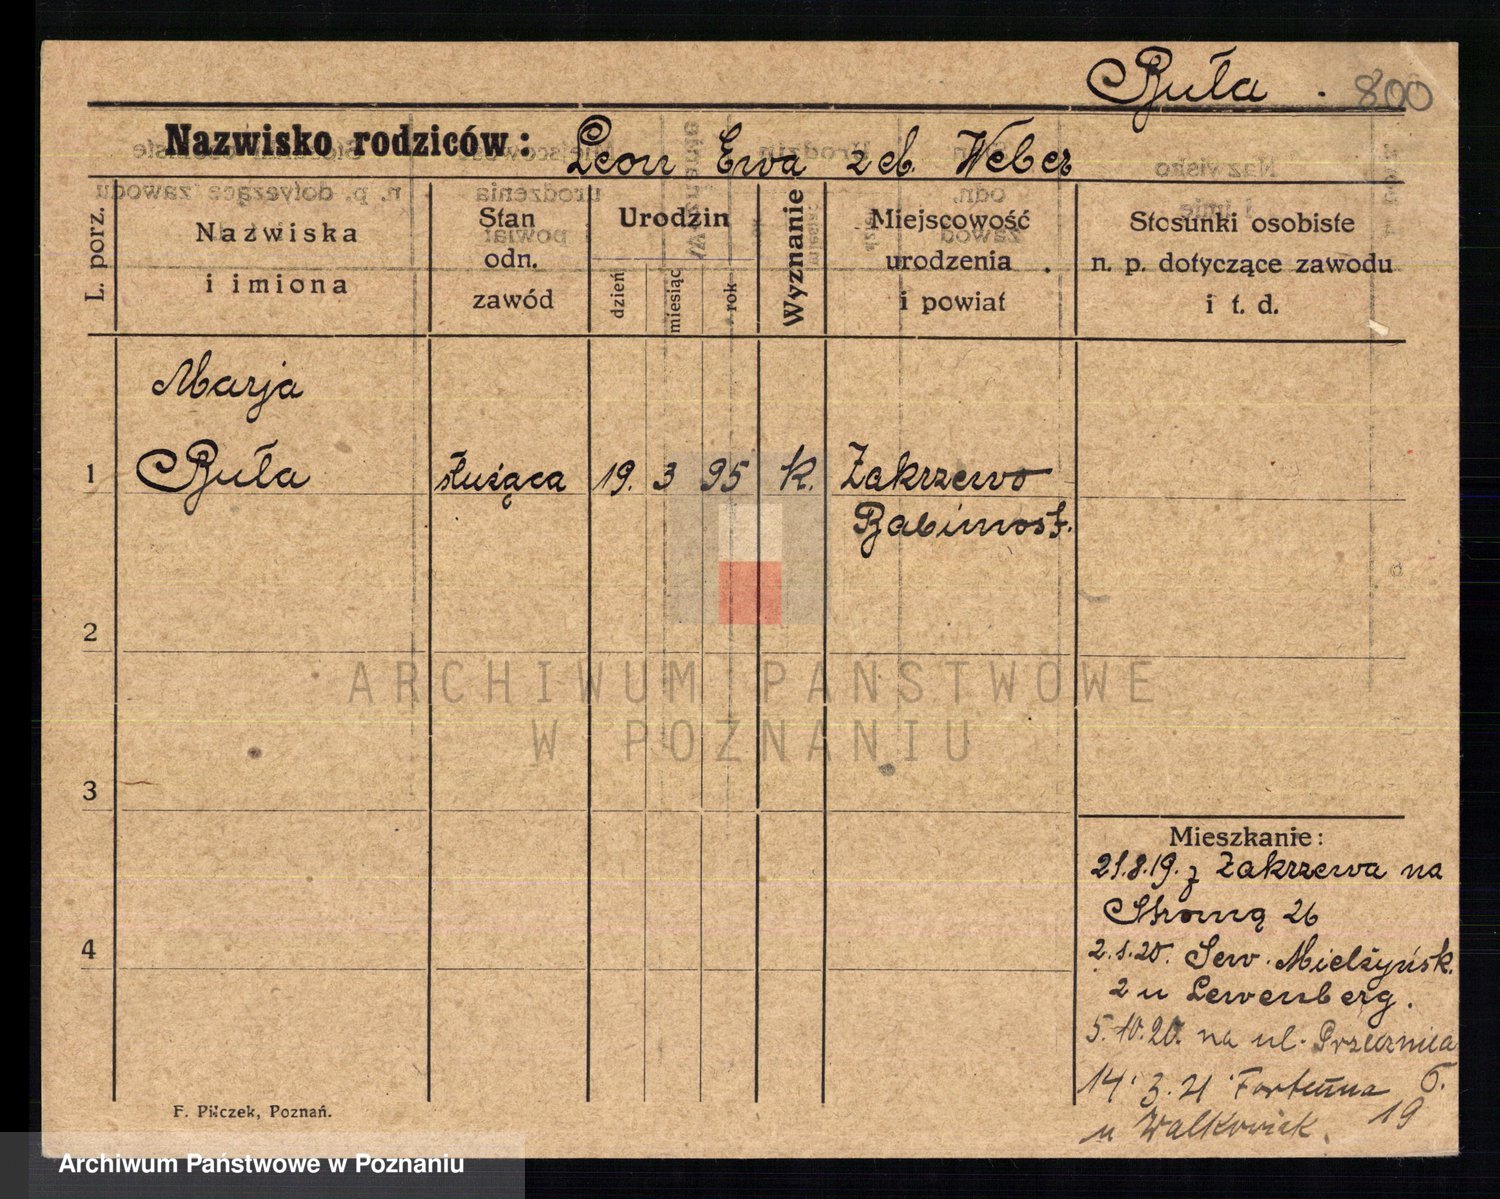 Buła . 800
Nazwisko rodziców: Leon Ewa z d. Weber
L. porz.
Nazwiska
i imiona
Stan
odn.
zawód
Urodzin
dzień
miesiąc
rok
Wyznanie
Miejscowość
urodzenia
i powiat
Stosunki osobiste
n. p. dotyczące zawodu
i t. d.
Marja
1 Buła służąca 19. 3 95 k. Zakrzewo
Babimost.
2
3
4
ARCHIWUM PAŃSTWOWE
W POZNANIU
Mieszkanie:
21.8.19. z Zakrzewa na
Stromą 26
2.1.20. Sew. Mielżyńsk.
2 u Lewenberg.
5.10.20. na ul. Przecznica
6.
14.3.21 Fortuna 19
u Walkowiak.
F. Pilczek, Poznań.
Archiwum Państwowe w Poznaniu